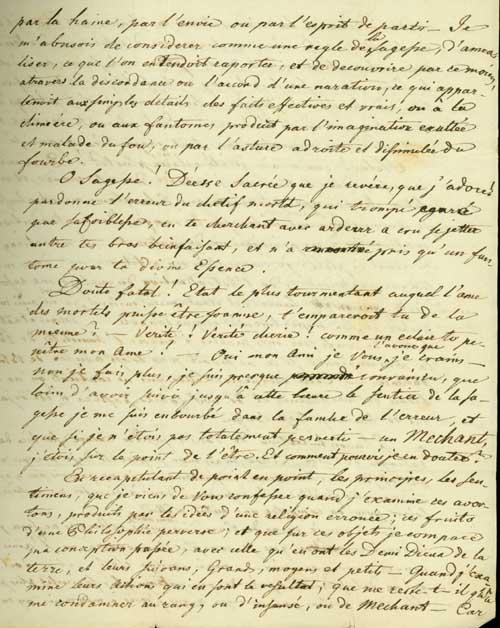 par la haine, par l'envie ou par l'esprit de parti — Je
m'abusois de considerer comme une regle de la Sagesse, d'ana-
liser, ce que l'on entendoit raporter, et de decouvrire par ce moyen
atravers la discordance ou l'accord d'une naration, ce qui appar-
tenoit aux simples details des faits effectives et vrais, ou à la
chimére, ou aux fantomes produit par l'imagination exaltée
et malade du fou, ou par l'astuce adroite et disimulée du
fourbe.
O Sagesse! Deesse Sacrée que je revére, que j'adore!
pardonne l'erreur du chetif mortel, qui trompé egaré
par sa foiblesse, en te cherchant avec ardeur a cru se jetter
entre tes bras beinfaisant, et n'a pris qu'un fan-
tome pour ta divine Essence.
Doute fatal! Etat le plus tourmentant auquel l'ame
des mortels puisse être soumise, t'emparerois tu de la
mienne? — Verité! Verité cherie! comme un eclair tu pe-
nêtre mon Ame — Oui mon Ami je vous l'avoue que je crains —
non je fais plus, je suis presque convaincu, que
loin d'avoir suivi jusqu'à cette heure le sentier de la sa-
gesse je me suis embourbé dans la fange de l'erreur, et
que si je n'étois pas totalement perverti — un Mechant,
j'étois sur le point de l'être. Et comment pouvois je en douter?
En recapitulant de point en point, les principes, les sen-
timens, que je viens de vous confesser quand j'examine ces avor-
tons, produits par les idées d'une religion erronée; ces fruits
d'une Philosophie perverse; et que sur ces objets je compare
ma conception passée, avec celle qu'en ont les Demi Dieux de la
terre, et leurs suivans, Grand, moyens et petit — Quand j'exa-
mine leurs action qui en sont le resultat; que me reste-t-il qu'à
me condamner au rang, ou d'insensé, ou de Mechant — Car